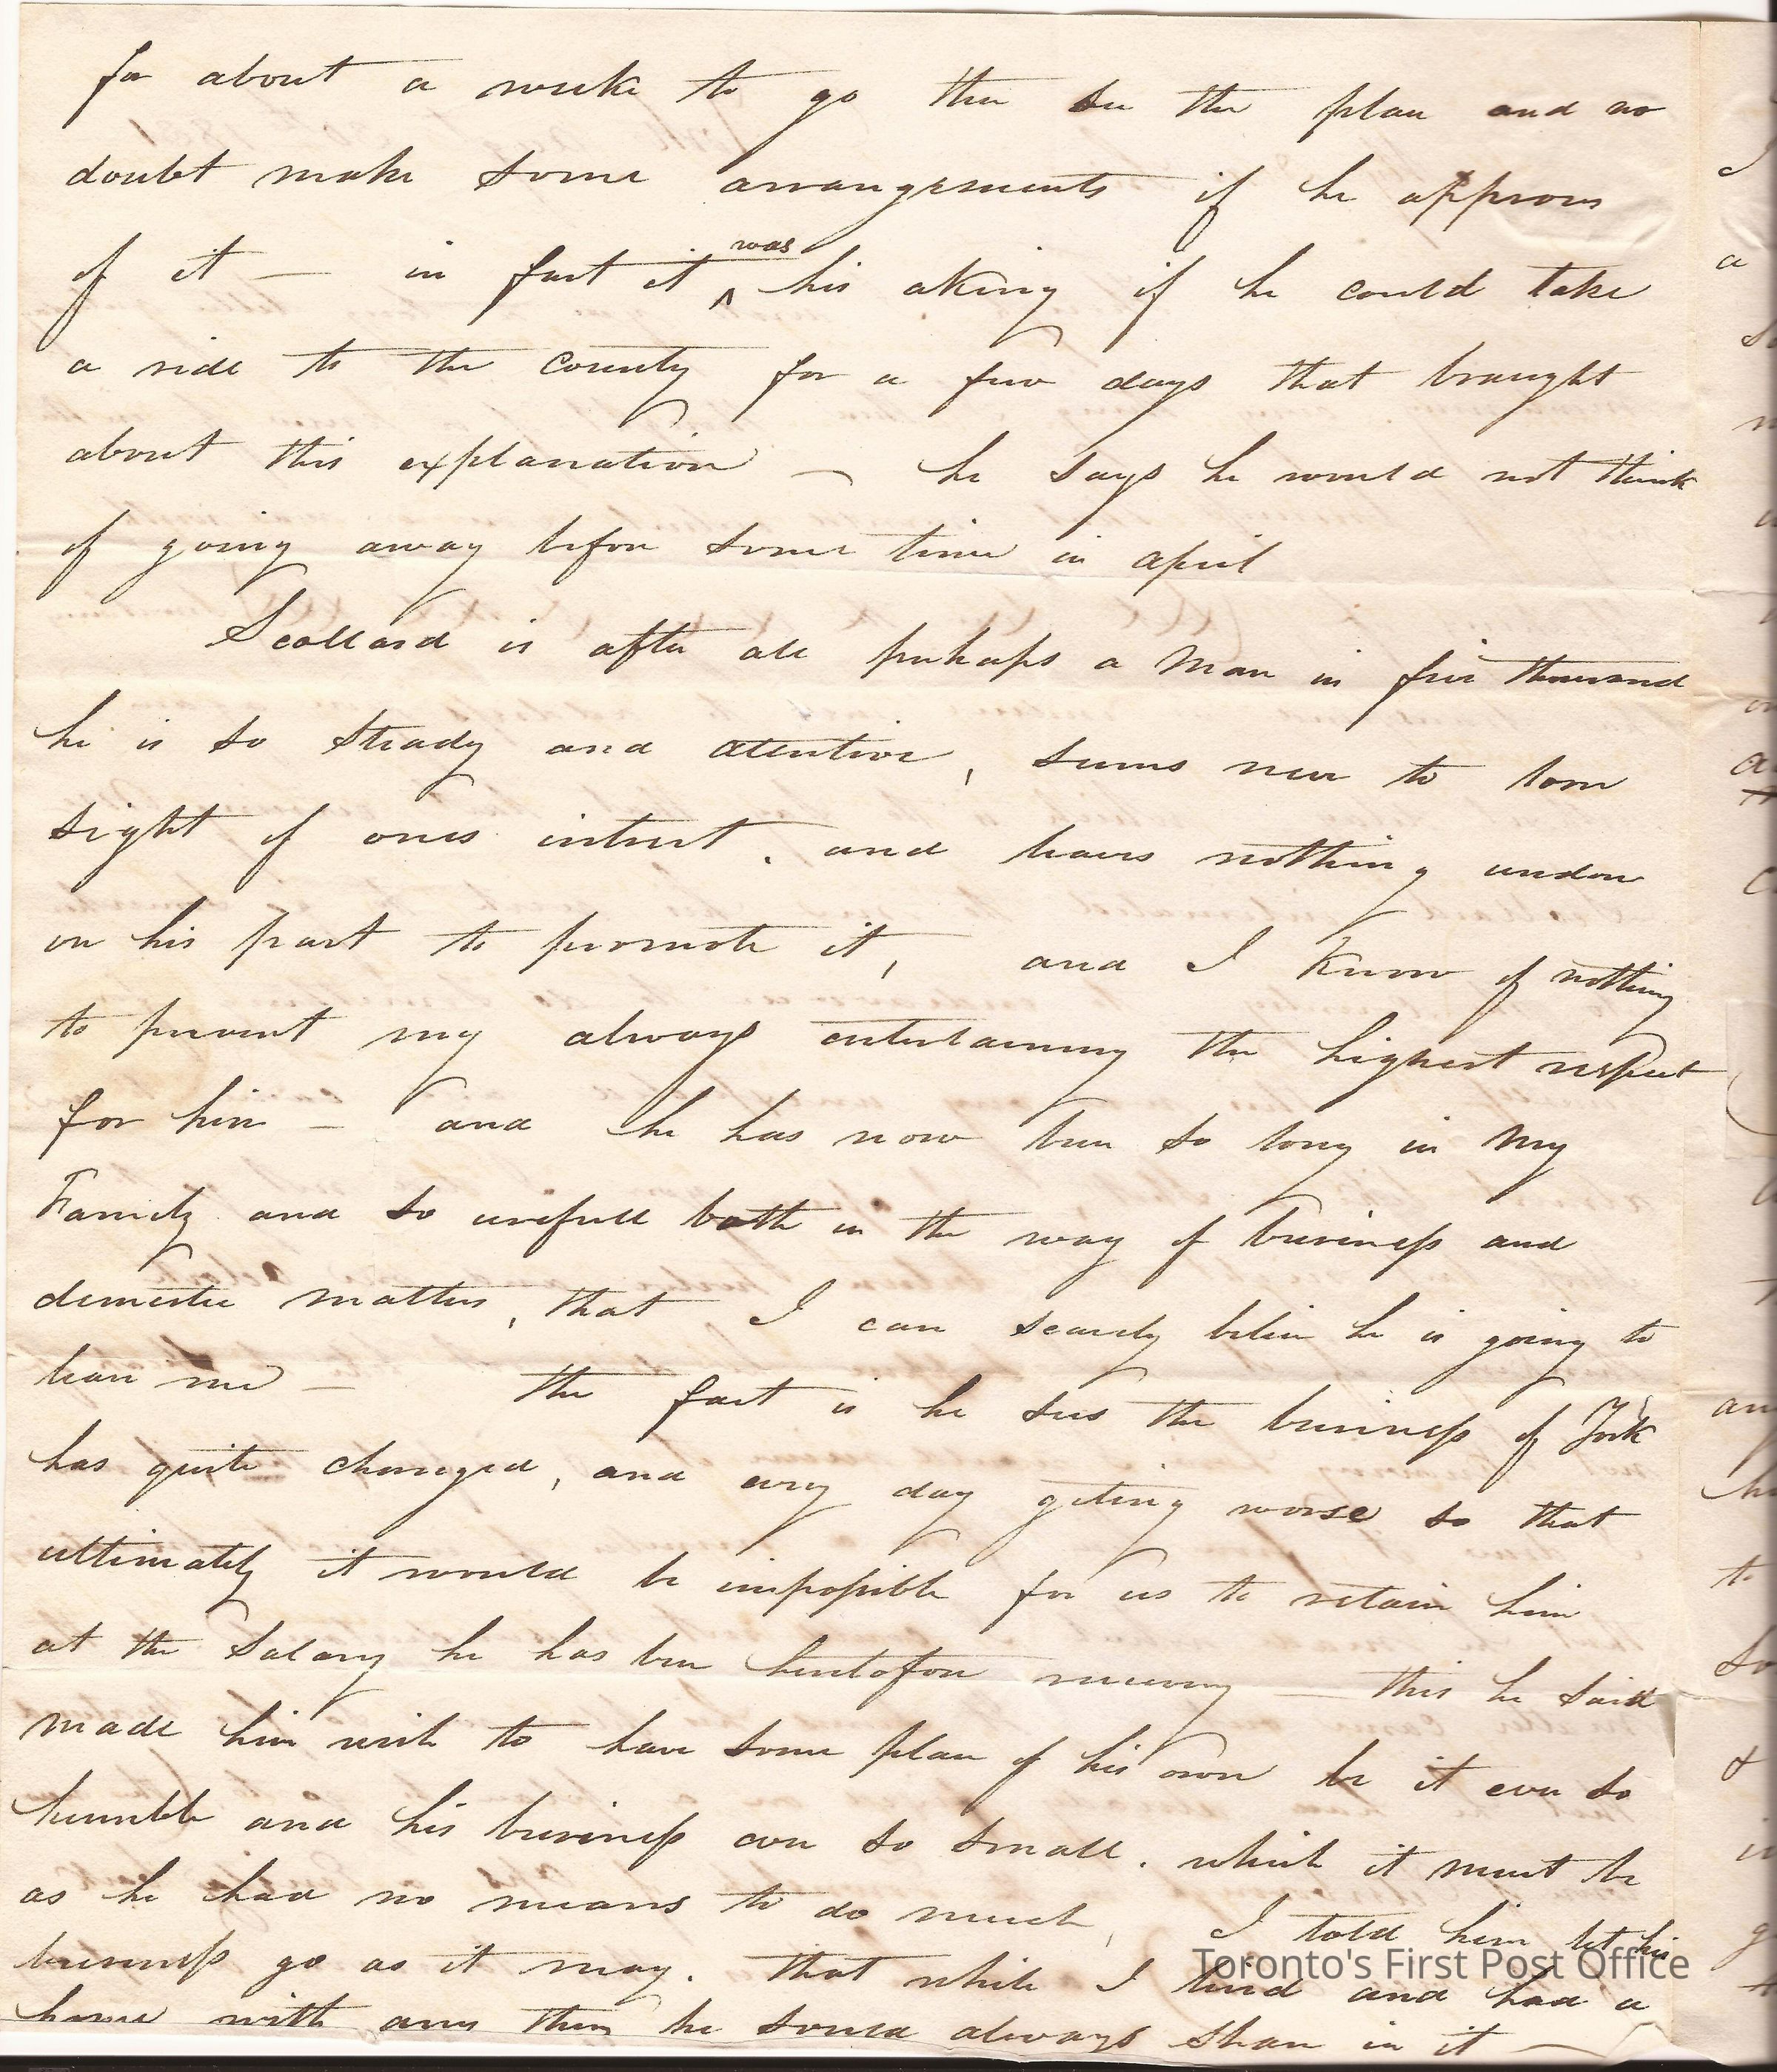 for about a weeke to go then see the plan and no
doubt make some arrangements if he approves
of it — in fact it ^was his aking if he could take
a ride to the county for a few days that braught
about this explanation — he says he would not think
of going away before some time in april
Scollard is after all perhaps a man in five thousand
he is so steady and atentive, seems never to loose
sight of ones intrest. and leaves nothing undone
on his part to promote it, and I know of nothing
to prevent my always entertaining the highest respect
for him — and he has now been so long in my
Family and so usefull both in the way of business and
domestic matters, that I can scarcely believe he is going to
leave me — the fact is he sees the business of York
has quite changed, and evry day geting worse so that
ultimately it would be impossible for us to retain him
at the salary he has been heretofore receiving — this he said
made him wish to have some plan of his own be it ever so
humble and his business ever so small. which it must be
as he had no means to do much, I told him let his
business go as it may. that while I lived and had a
house with any thing he sould always share in it —
Toronto's First Post Office